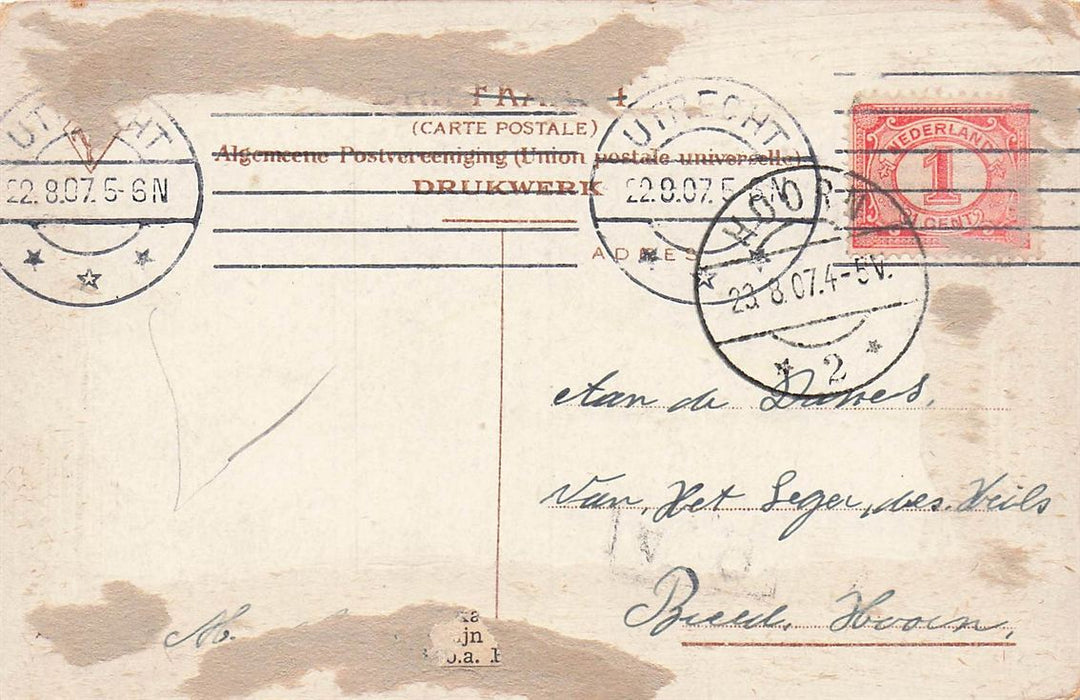 (CARTE POSTALE)
Algemeene Postvereeniging (Union postale universelle)
DRUKWERK
ADRES
UTRECHT
22.8.07. 5-6N
2
UTRECHT
22.8.07. 5 N
NEDERLAND
1
CENT
HOORN
23.8.07.4-5V.
2
Aan de Dames.
Van, Het Leger, des. Heils
Breed. Hoorn.
M.
ka
ijn
o.a.